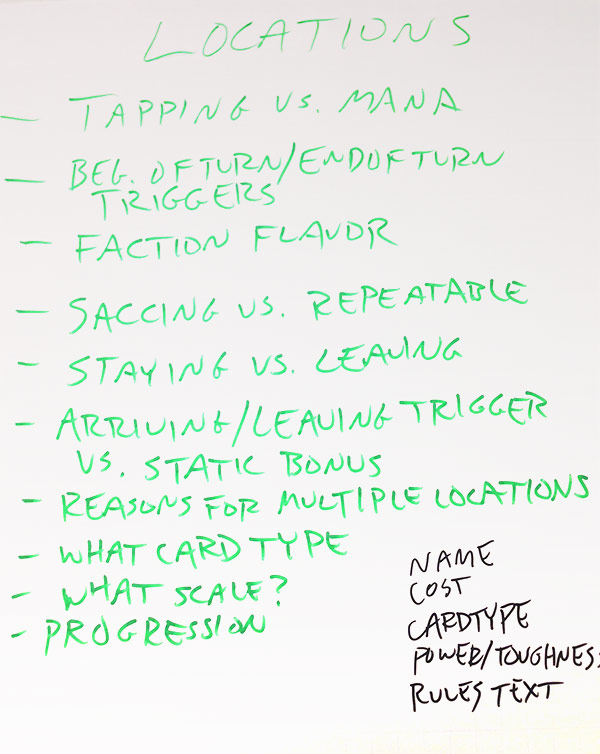 LOCATIONS
- TAPPING VS. MANA
- BEG. OF TURN/END OF TURN
TRIGGERS
- FACTION FLAVOR
- SACCING VS. REPEATABLE
- STAYING VS. LEAVING
- ARRIVING/LEAVING TRIGGER
VS. STATIC BONUS
- REASONS FOR MULTIPLE LOCATIONS
- WHAT CARD TYPE
- WHAT SCALE?
- PROGRESSION
NAME
COST
CARDTYPE
POWER/TOUGHNESS
RULES TEXT